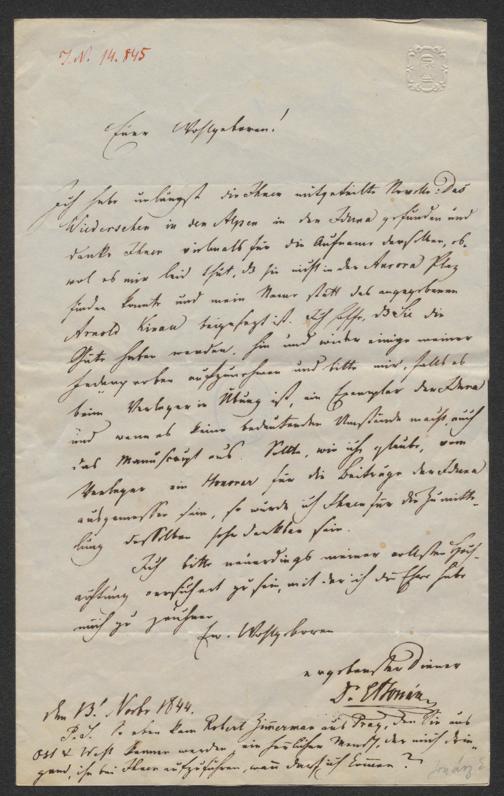 I. N. 14.845
Euer Wohlgeboren!
Ich habe unlängst die Ihnen mitgeteilte Novelle: Das
Wiedersehen in den Alpen in der Iduna gefunden und
danke Ihnen vielmals für die Aufname derselben, ob-
wol es mir leid thut, daß sie nicht in der Aurora Plaz
finden konnte und mein Name statt des angegebenen
Arnold Hirau beigesezt ist. Ich hoffe, daß Sie die
Güte haben werden, hin und wieder einige meiner
aufzunehmen und bitte mir, falls es
beim Verleger in Übung ist, ein Exemplar der Iduna
und wenn es keine bedeutenden Umstände macht, auch
das Manuscript aus. Sollte, wie ich glaube, vom
Verleger ein Honorar für die Beiträge der Iduna
ausgemessen sein, so würde ich Ihnen für die Zumitt-
lung desselben sehr dankbar sein.
Ich bitte neuerdings meiner vollsten Hoch-
achtung versichert zu sein, mit der ich die Ehre habe
mich zu zeichnen
Ew. Wohlgeboren
ergebenster Diener
Dr.
den 13. Novbr 1844.
P. S. So eben kam Robert Zimmerman aus Prag, den Sie aus
Ost & West kennen werden, ein herrlicher Mensch, der mich drin-
gend, ihn bei Ihnen aufzuführen, wann darf ich kommen?